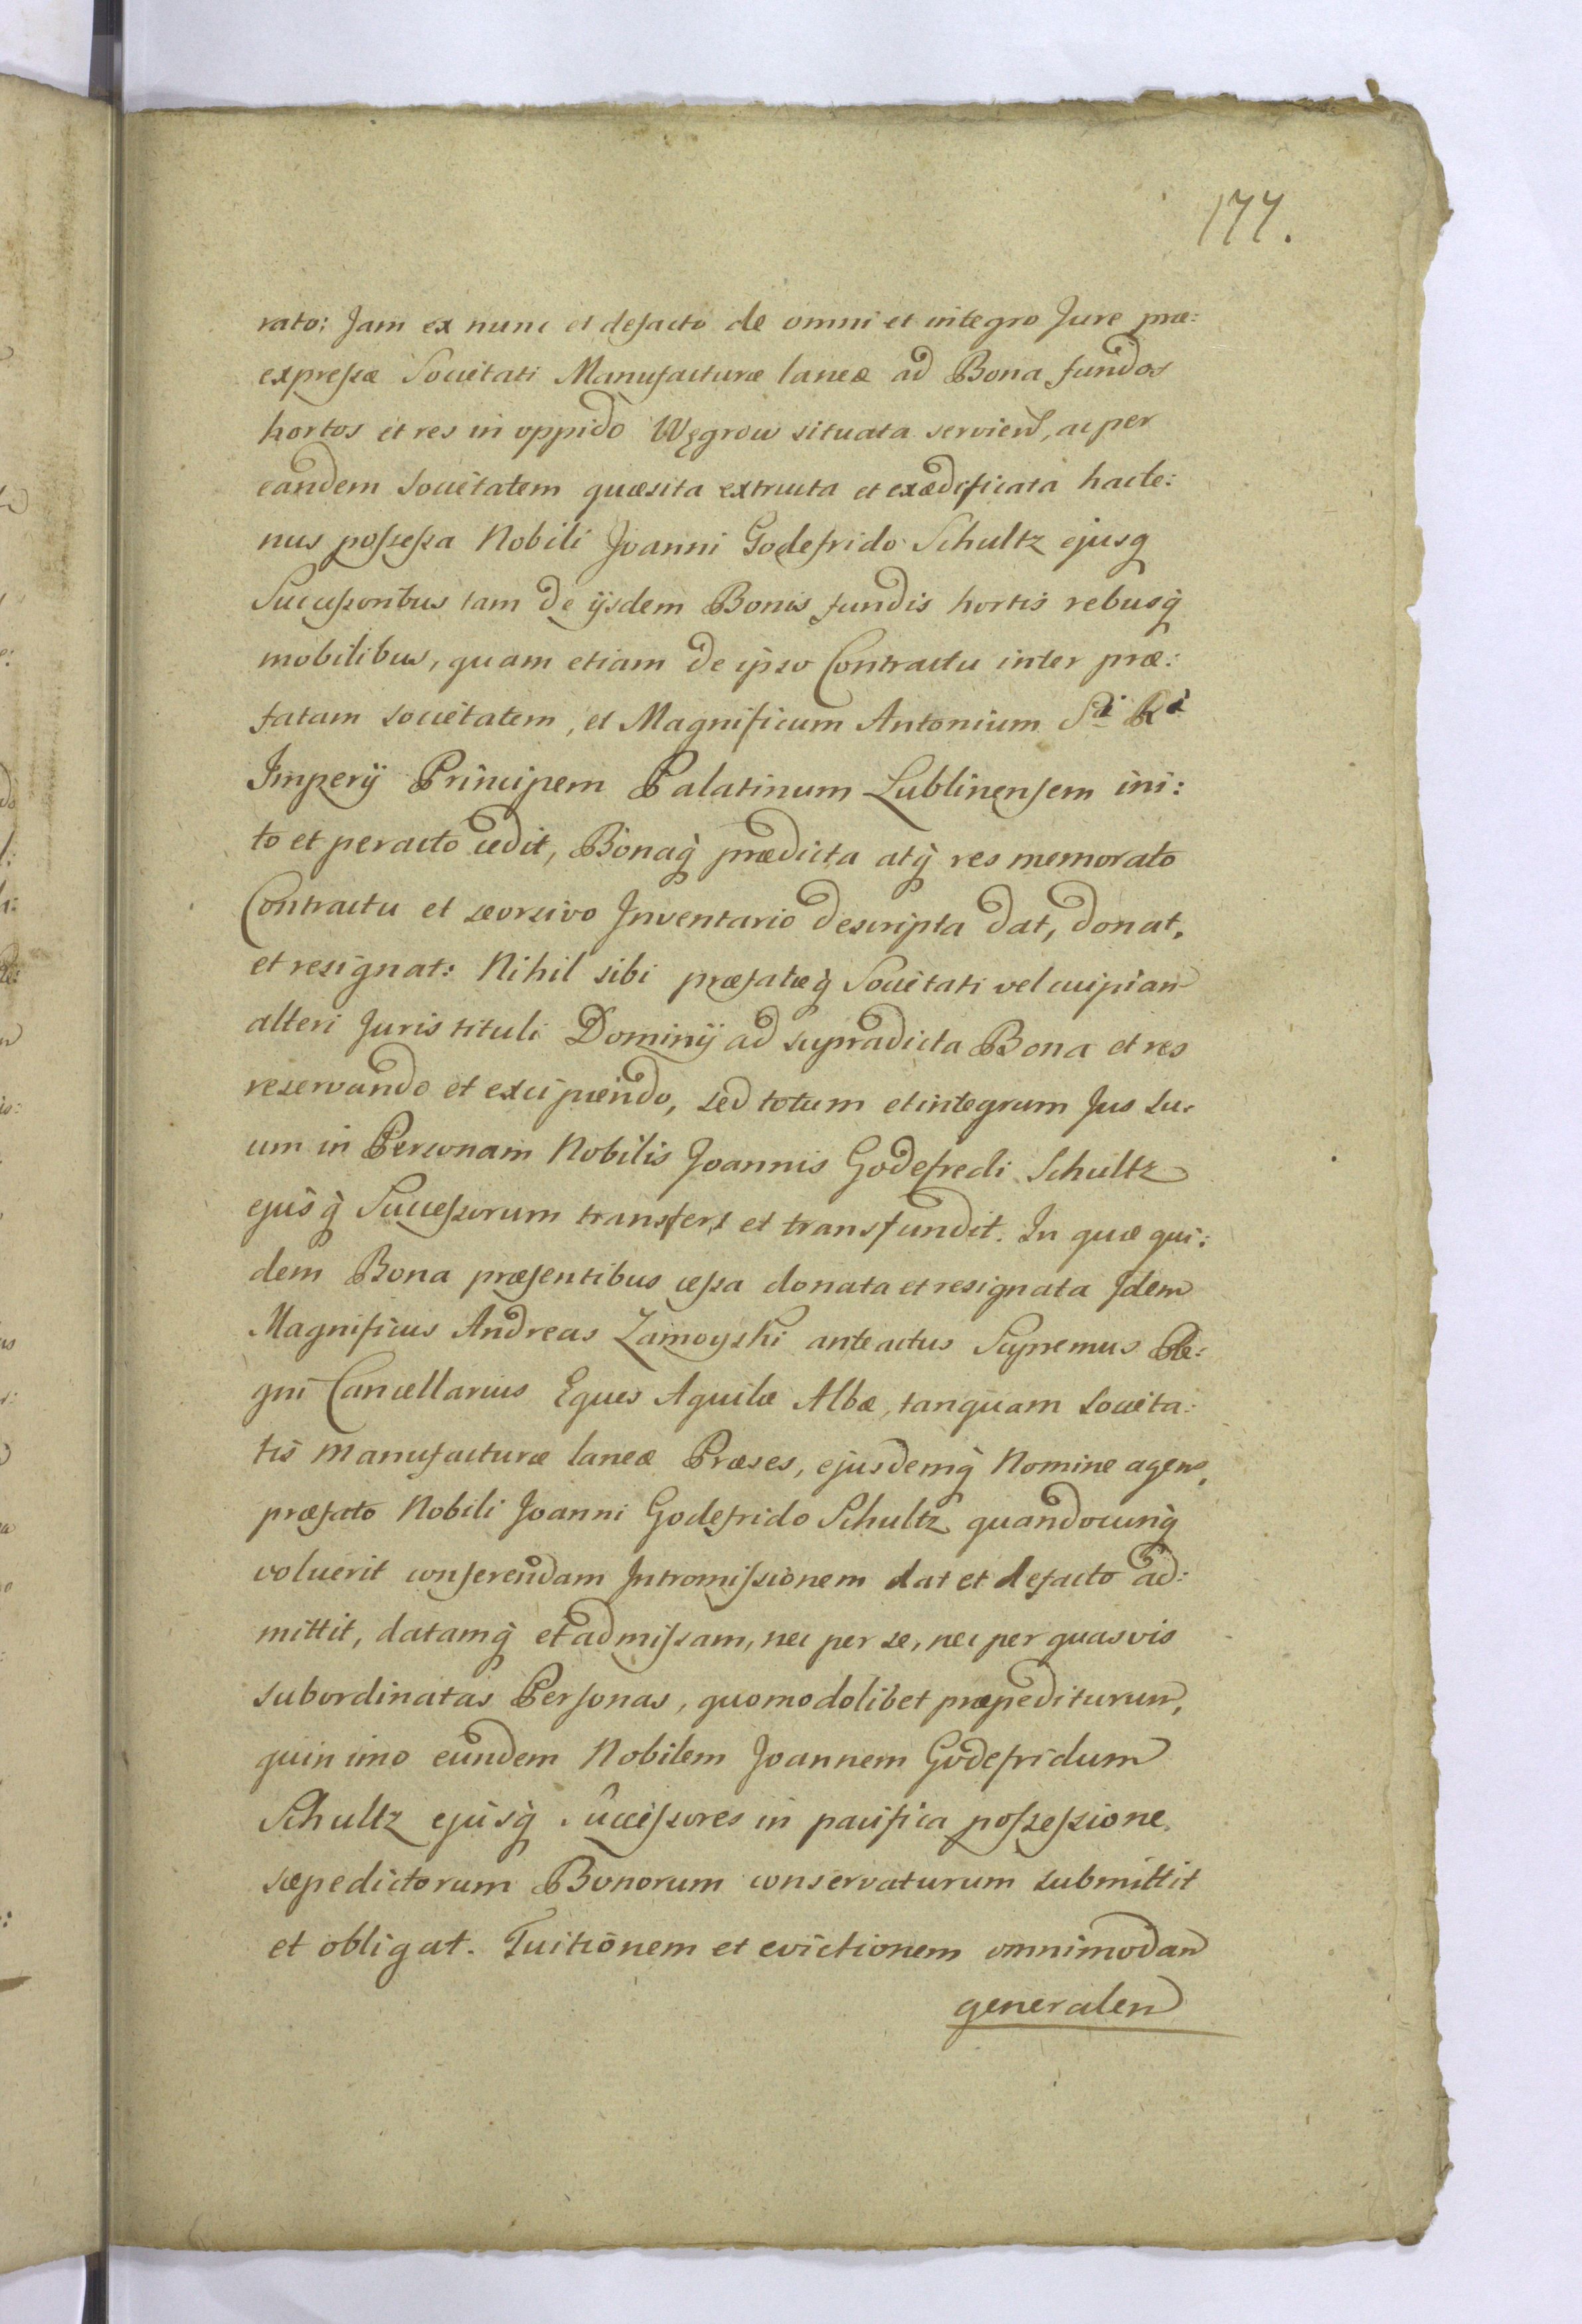 177.
rato: Jam ex nunc et defacto de omni et integro Jure præ:
expressæ Societati Manufacturæ laneæ ad Bona fundos
hortos et res in oppido Węgrow situata servien, ac per
eandem societatem quæsita extructa et exædificata hacte:
nus possessa Nobili Joanni Godefrido Schultz ejusq
Successoribus tam de ijsdem Bonis fundis hortis rebusq
mobilibus, quam etiam de ipso Contractu inter præ:
fatam societatem, et Magnificum Antonium Sti Ri
Imperij Principem Palatinum Lublinensem ini:
to et peracto cedit, Bonaq prædicta atq res memorato
Contractu et seorsivo Inventario descripta dat, donat,
et resignat: Nihil sibi præfatæq Societati vel cuipiam
alteri Juris tituli Dominij ad supradicta Bona et res
reservando et excipiendo, sed totum et integrum Jus su:
um in Personam Nobilis Joannis Godefredi Schultz
ejusq Successorum transfert et transfundit. In quæ qui:
dem Bona præsentibus cessa donata et resignata Idem
Magnificus Andreas Zamoyski anteactus Supremus Re:
gni Cancellarius Eques Aquilæ Albæ, tanquam societa:
tis manufacturæ laneæ Præses, ejusdemq Nomine agens,
præfato Nobili Joanni Godefrido Schultz quandocunq
voluerit conferendam Intromissionem dat et defacto ad:
mittit, datamq et admissam, nec per se, nec per quasvis
subordinatas Personas, quomodolibet præpediturum,
quin imo eundem Nobilem Joannem Godefridum
Schultz ejusq Successores in pacifica possessione
sæpedictorum Bonorum conservaturum submittit
et obligat. Tuitionem et evictionem omnimodam
generalem